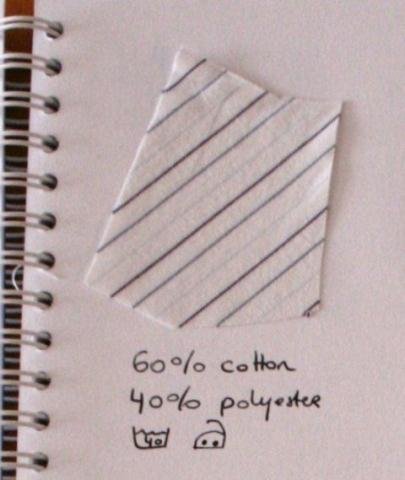 60% cotton
40% polyester
40